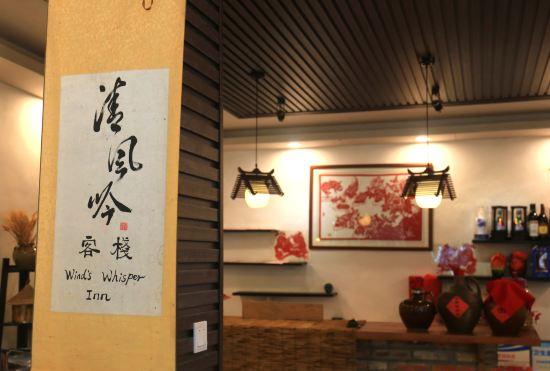 清风吟
客栈
Wind's Whisper
Inn